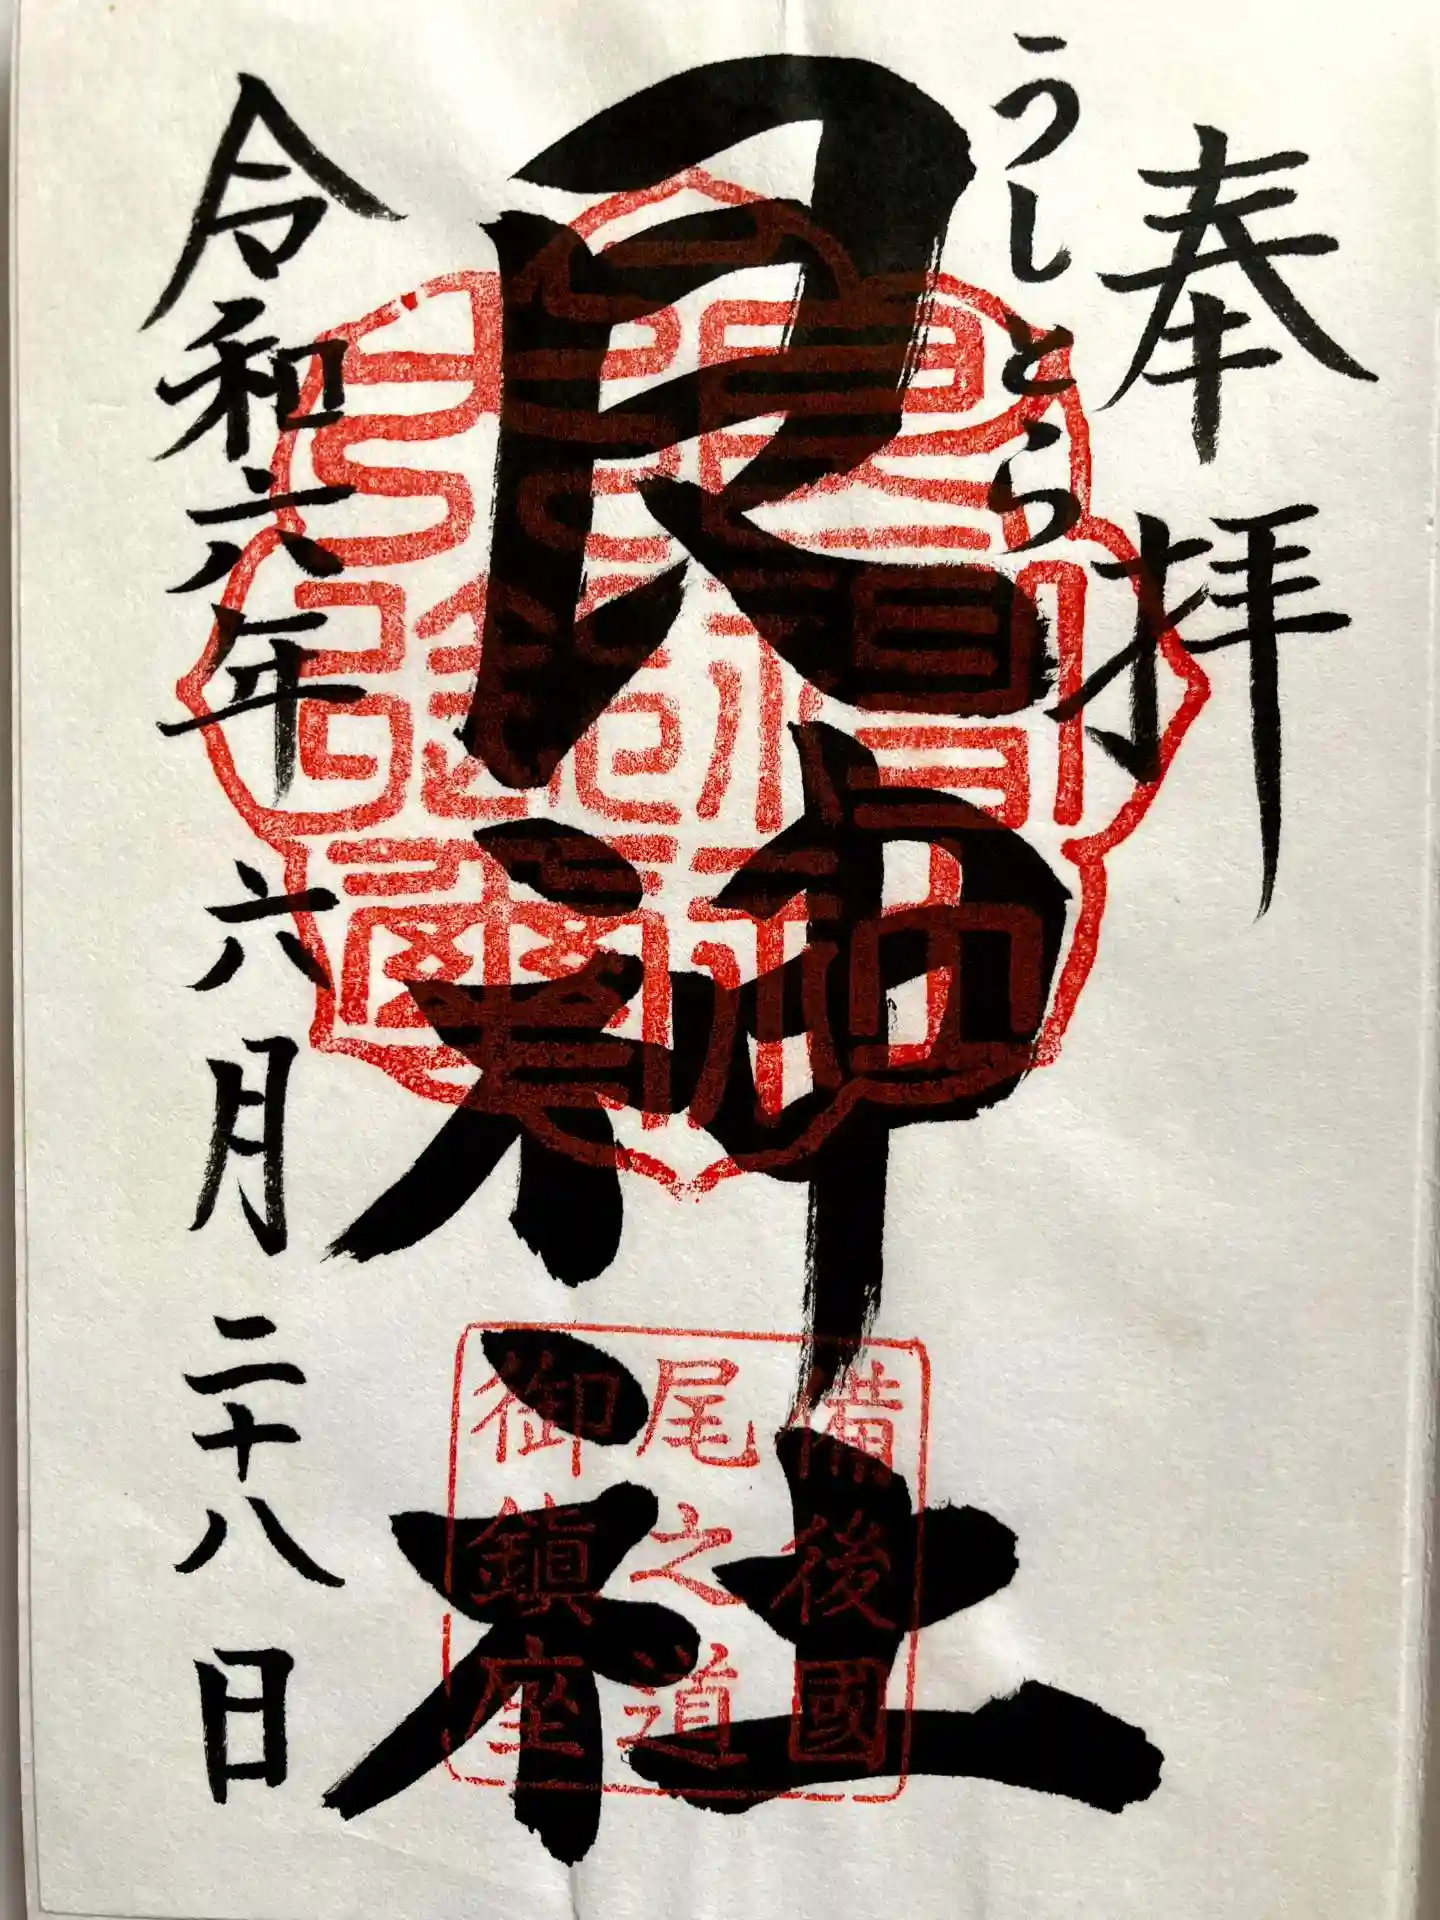 奉拝
うしとら
艮神社
備後國
尾之道
御鎮座
令和六年六月二十八日